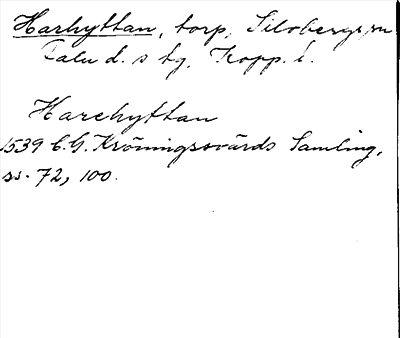 Harhyttan, torp, Silvbergs sn
Falu d. s tg, Kopp. l.
Harehyttan
1539 C.G. Kröningsvärds Samling,
ss. 72, 100.